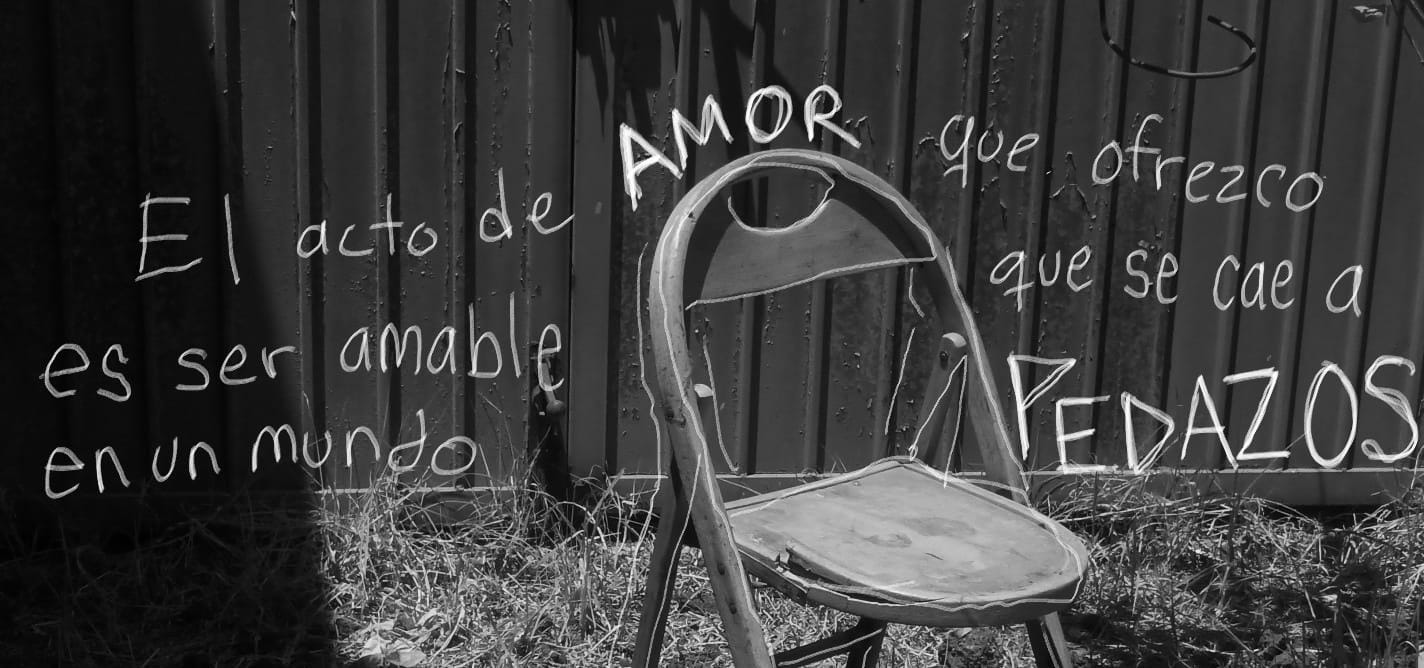 El acto de AMOR que ofrezco
es ser amable
en un mundo
que se cae a
PEDAZOS